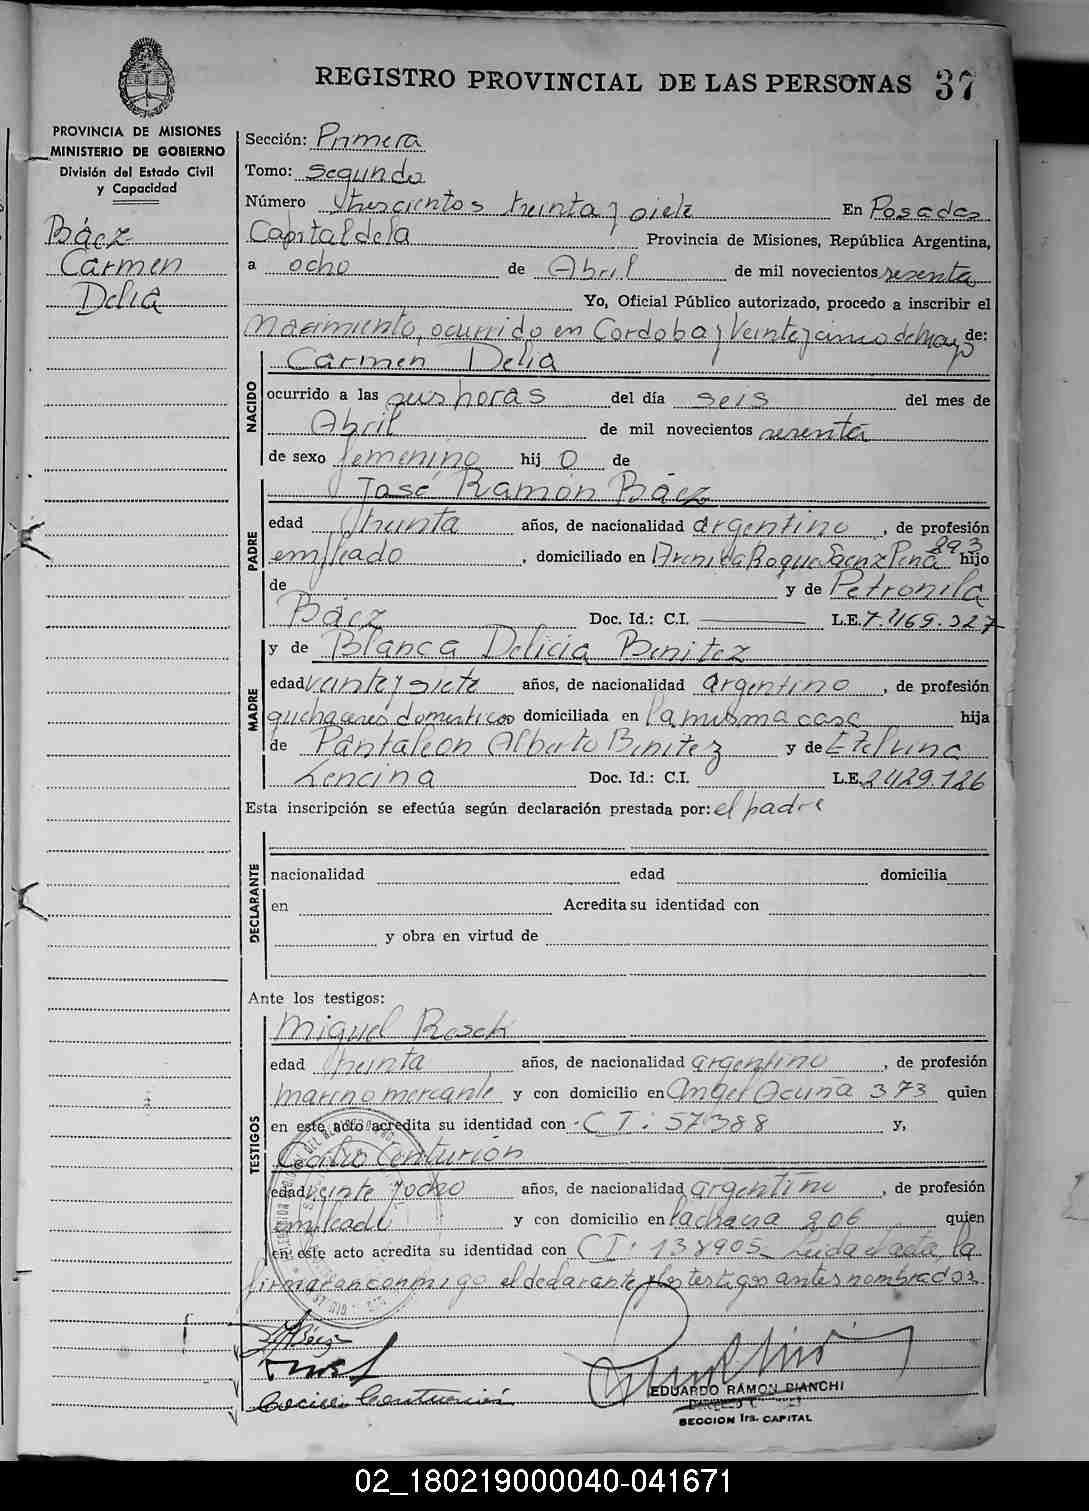 REGISTRO PROVINCIAL DE LAS PERSONAS 37
PROVINCIA DE MISIONES
MINISTERIO DE GOBIERNO
División del Estado Civil
y Capacidad
Báez
Carmen
Delia
Sección: Primera
Tomo: Segundo
Número trescientos treinta y siete En Posadas
Capital de la Provincia de Misiones, República Argentina,
a ocho de Abril de mil novecientos sesenta
Yo, Oficial Público autorizado, procedo a inscribir el
Nacimiento, ocurrido en Cordoba y Veinte y cinco de Mayo de:
NACIDO
Carmen Delia
ocurrido a las seis horas del día seis del mes de
Abril de mil novecientos sesenta
de sexo femenino hij o de
PADRE
José Ramón Báez
edad treinta años, de nacionalidad argentino, de profesión
empleado, domiciliado en Avenida Roque Saenz Pena 893 hijo
de y de Petronila
Báez Doc. Id.: C.I. L.E. 7.469.327
MADRE
y de Blanca Delicia Benitez
edad veinte y siete años, de nacionalidad argentino, de profesión
quehaceres domesticos domiciliada en la misma casa hija
de Pantaleon Alberto Benitez y de Etelvina
Lencina Doc. Id.: C.I. L.E. 2429.126
Esta inscripción se efectúa según declaración prestada por: el padre
DECLARANTE
nacionalidad edad domicilia
en Acredita su identidad con
y obra en virtud de
Ante los testigos:
TESTIGOS
Miguel
edad treinta años, de nacionalidad argentino, de profesión
marino mercante y con domicilio en Angel Acuña 373 quien
en este acto acredita su identidad con C I: 57388 y,
Cecilio Centurión
edad veinte y ocho años, de nacionalidad argentino, de profesión
empleado y con domicilio en la chacra 206 quien
en este acto acredita su identidad con C I: 138905 Leida el acta la
firmaran conmigo el declarante y los testigos antes nombrados.
Báez
Cecilio Centurión
EDUARDO RAMON BIANCHI
SECCION 1ra. CAPITAL
02_180219000040-041671